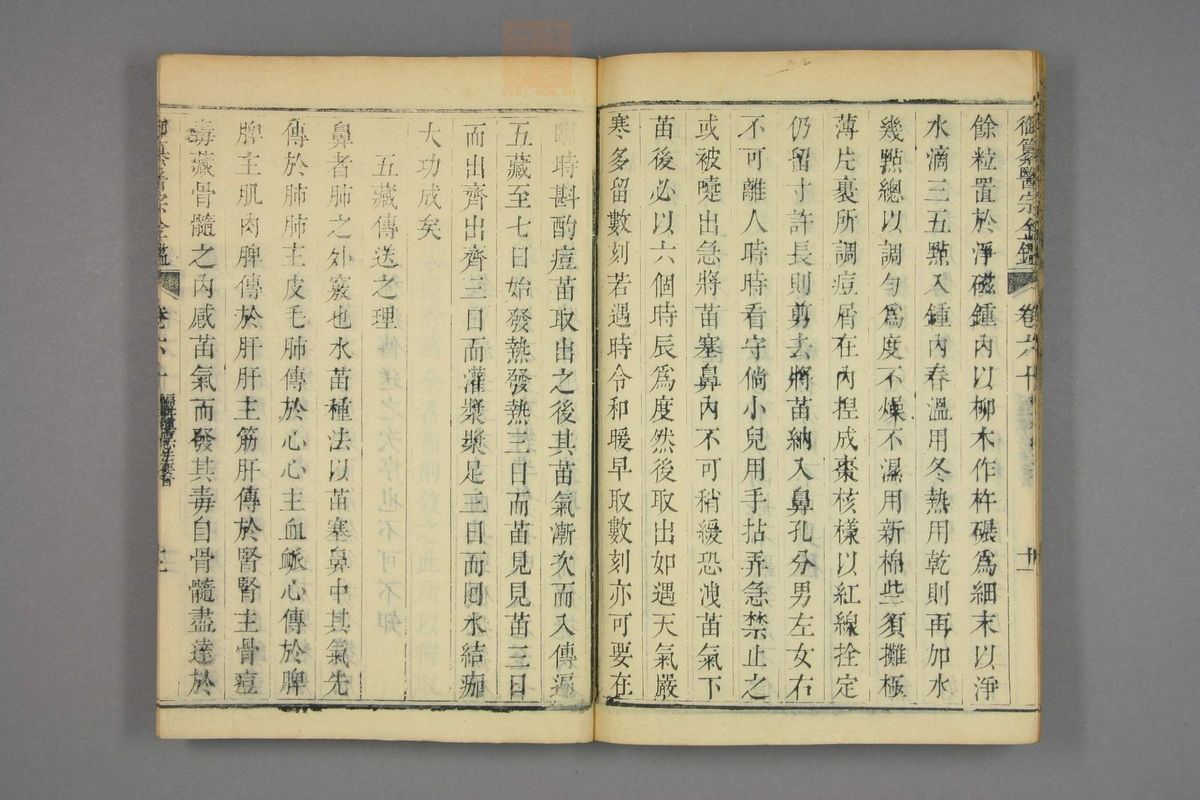 御纂醫宗金鑑 卷六十
餘粒置於淨磁鍾內以柳木作杵碾爲細末以淨
水滴三五點入鍾內春溫用冬熱用乾則再加水
幾點總以調勻爲度不燥不濕用新棉些須攤極
薄片裹所調痘屑在內揑成棗核樣以紅線拴定
仍留寸許長則剪去將苗納入鼻孔分男左女右
不可離人時時看守倘小兒用手拈弄急禁止之
或被嚏出急將苗塞鼻內不可稍緩恐洩苗氣下
苗後必以六個時辰爲度然後取出如遇天氣嚴
寒多留數刻若遇時令和暖早取數刻亦可要在
臨時斟酌痘苗取出之後其苗氣漸次而入傳遍
五藏至七日始發熱發熱三日而苗見見苗三日
而出齊出齊三日而灌漿漿足三日而回水結痂
大功成矣
五藏傳送之理
鼻者肺之外竅也水苗種法以苗塞鼻中其氣先
傳於肺肺主皮毛肺傳於心心主血脈心傳於脾
脾主肌肉脾傳於肝肝主筋肝傳於腎腎主骨痘
毒藏骨髓之內感苗氣而發其毒自骨髓盡達於